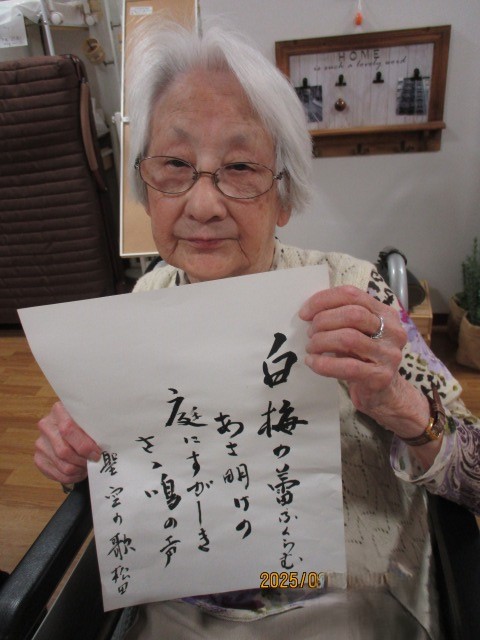 白梅の蕾ふくらむ
あさ明けの
庭にすがしき
さゝ鳴の声
聖空の歌 松田
HOME
is such a lovely word
2025/0